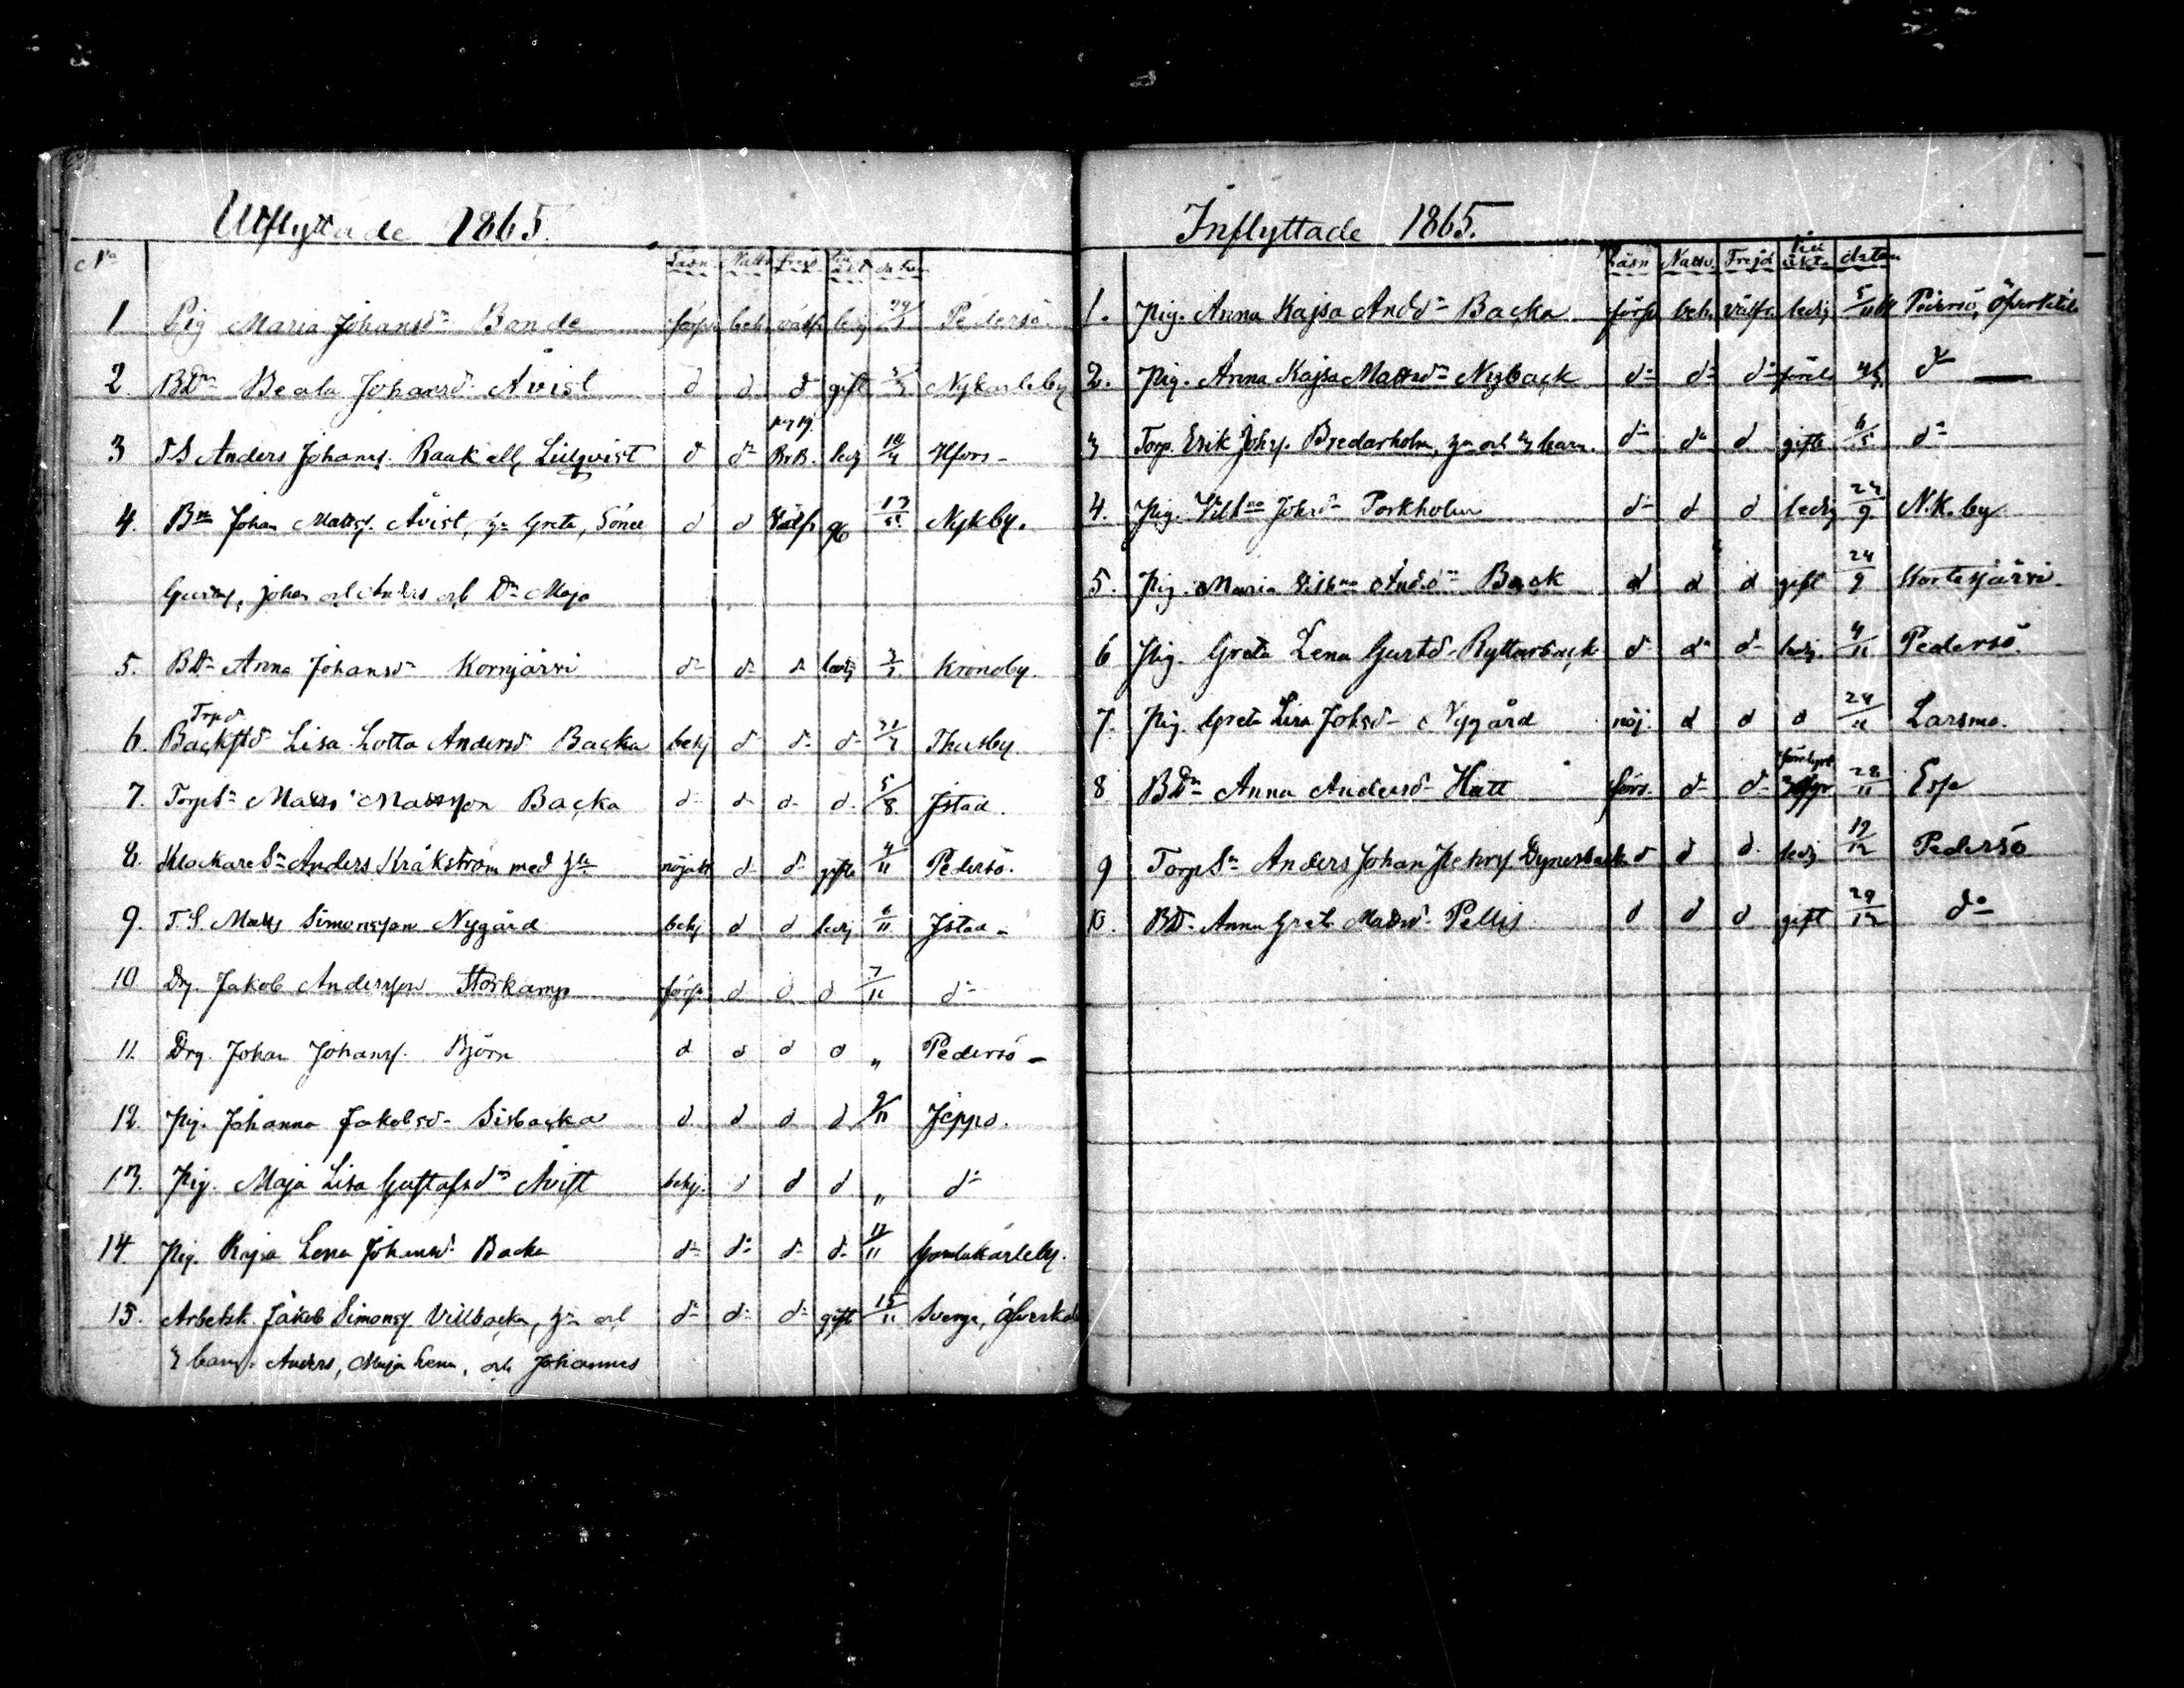 Utflyttade 1865.
No Läsn Nattv Frejd datum
1 Pig Maria Johansdr Bonde förs. beh. välfr. ledig Pedersö
2. BDr Beata Johansdr Åvist d d d gift Nykarleby
3 T.S Anders Johanss. Raak ell. Liliqvist d d Br.B. ledig 10/4 Hfors
4. Bn Johan Mattss. Åvist, h:u Greta, Söner d d Välfr. Nykby.
Johan och Anders och Dr Maja
5. BDr Anna Johansdr Kornjärvi d d d ledig Kronoby.
Trp dr
6. Backstd Lisa Lotta Andersd Backa behj d d d Thusby
7. TorpSn Matts Mattsson Backa d d d d 5/8 Istad.
8. KlockareSn Anders Kråkström med h:u nöjakt d d gifte 4/11 Pedersö.
9. T.S. Matts Simonsson Nygård behj d d ledig 6/11 Istad
10 Dg. Jakob Andersson Storkamp förs. d d d 7/11 d
11. Drg. Johan Johanss. Björn d d d d " Pedersö
12. Pig. Johanna Jakobsd Sisbacka d. d d d 9/11 Jeppo.
13. Pig. Maja Lisa Gustafsdr Åvist behj. d d d " d
14. Pig. Kajsa Lena Johansd Backa d d d d 11 Gamlakarleby.
15. Arbetsk. Jakob Simonss. Villbacka, h:u och d d d gift 15/11 Sverge,
3 barn. Anders, Maja Lena, och Johannes
Inflyttade 1865.
Läsn Nattv. Frejd till äkt. datum
1. Pig. Anna Kajsa Andd Backa förs. beh. välfr. ledig Pedersö,
2. Pig. Anna Kajsa Mattsdr Nyback d d d d
3 Torp. Erik Johss. Bredarholm, h:u och 3 barn. d d d gifte 6/5 d
4. Pig. Vilhna Johsd Porkholm d d d ledig 24/9. N.K.by
5. Pig. Maria Vilhna Andd Back d d d gift 24/9 Kortesjärvi
6 Pig. Greta Lena Gustd Ryttarback d d d ledig. 4/11 Pedersö.
7. Pig. Greta Lisa Johsd Nygård nöj. d d d 24/11 Larsmo.
8 BDr Anna Andersd Hatt förs. d d 28/11 Esse
9 TorpSn Anders Johan Dynesback d d d. ledig 19/12 Pedersö
10. BDr Anna Greta Mattsd Pellis d d d gift 29/12 do